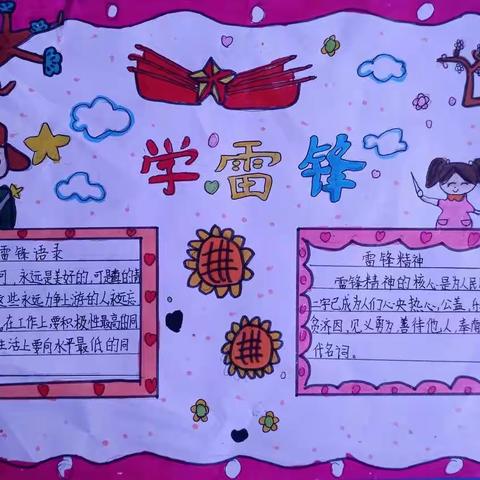 学雷锋
雷锋语录
可,永远是美好的,可
这些永远力争上游的人永远
在工作上要积极性最高的同
生活上要向水平最低的同
雷锋精神
雷锋精神的核心是为人民
二字已成为人们心央热心,公益,乐
贫济困,见义勇为,善待他人,奉
代名词。